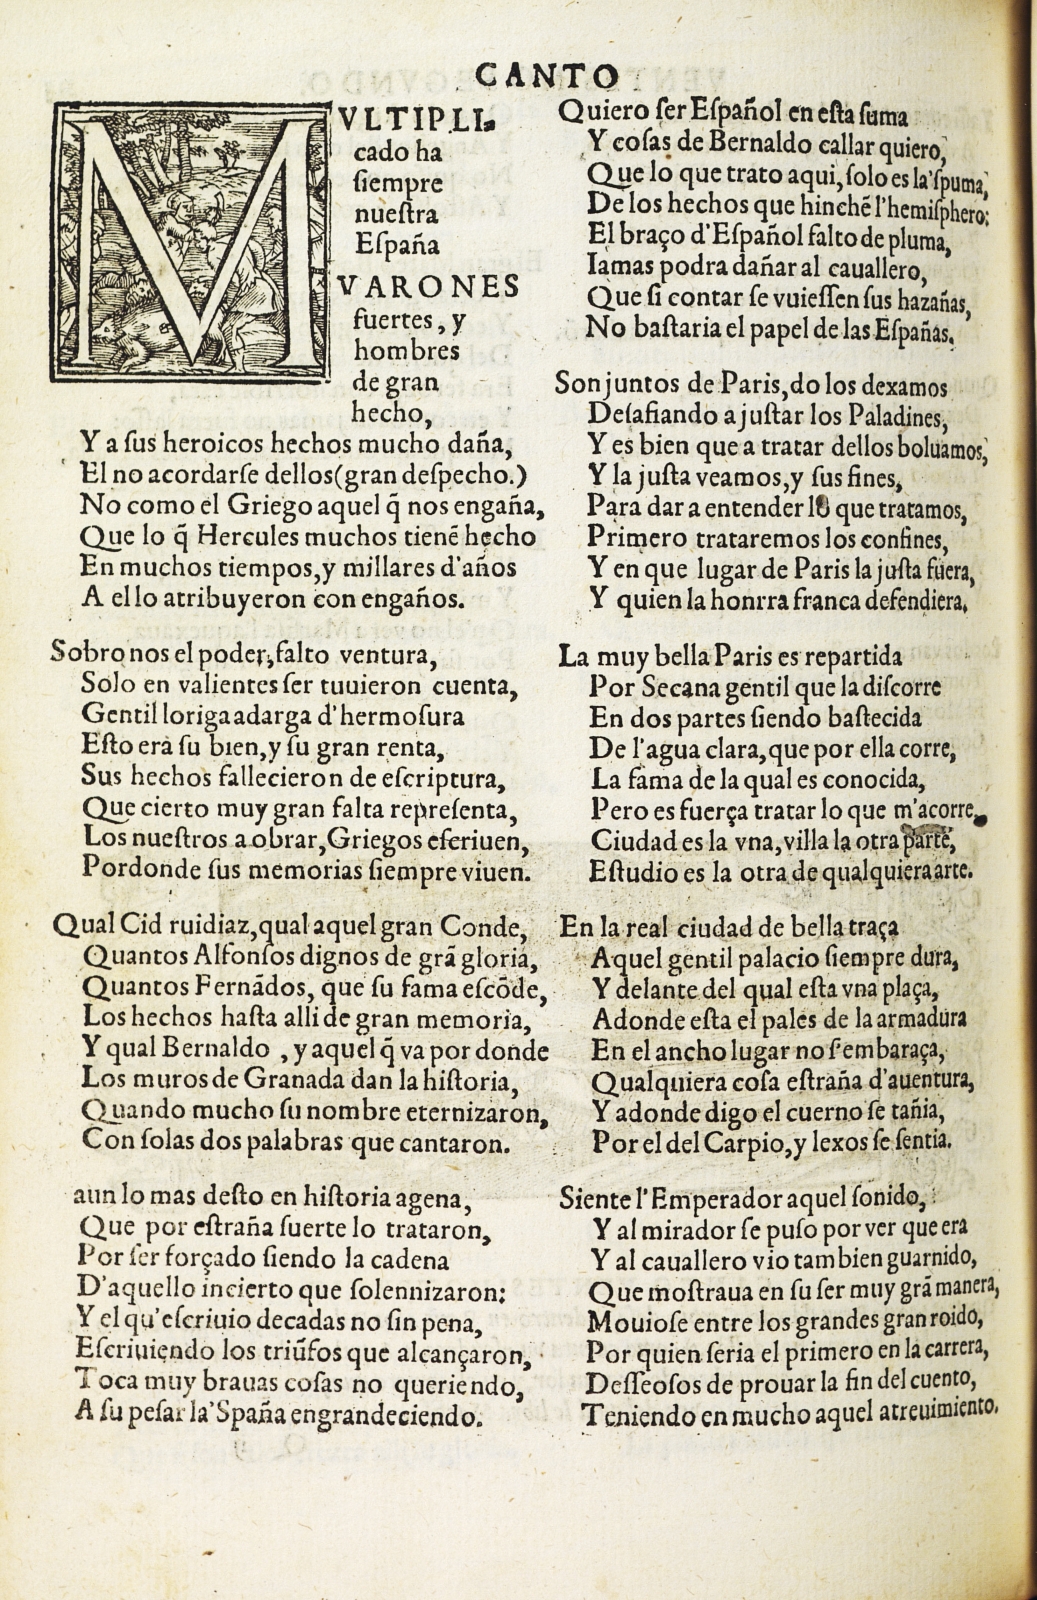 CANTO
MVLTIPLI-
cado ha
ſiempre
nueſtra
Eſpaña
VARONES
fuertes, y
hombres
de gran
hecho,
Y a ſus heroicos hechos mucho daña,
El no acordarſe dellos(gran deſpecho.)
No como el Griego aquel q̃ nos engaña,
Que lo q̃ Hercules muchos tienẽ hecho
En muchos tiempos,y millares d'años
A ello atribuyeron con engaños.
Sobro nos el poder,falto ventura,
Solo en valientes ſer tuuieron cuenta,
Gentil loriga adarga d'hermoſura
Eſto era ſu bien,y ſu gran renta,
Sus hechos fallecieron de eſcriptura,
Que cierto muy gran falta repreſenta,
Los nueſtros a obrar,Griegos eſcriuen,
Pordonde ſus memorias ſiempre viuen.
Qual Cid ruidiaz,qual aquel gran Conde,
Quantos Alfonſos dignos de grã gloria,
Quantos Fernãdos, que ſu fama eſcõde,
Los hechos haſta alli de gran memoria,
Y qual Bernaldo , y aquel q̃ va por donde
Los muros de Granada dan la hiſtoria,
Quando mucho ſu nombre eternizaron,
Con ſolas dos palabras que cantaron.
aun lo mas deſto en hiſtoria agena,
Que por eſtraña ſuerte lo trataron,
Por ſer forçado ſiendo la cadena
D'aquello incierto que ſolennizaron:
Y el qu'eſcriuio decadas no ſin pena,
Eſcriuiendo los triũfos que alcançaron,
Toca muy brauas coſas no queriendo,
A ſu peſar la'Spaña engrandeciendo.
Quiero ſer Eſpañol en eſta ſuma
Y coſas de Bernaldo callar quiero,
Que lo que trato aqui,ſolo es la'ſpuma,
De los hechos que hinchẽ l'hemiſphero:
El braço d'Eſpañol falto de pluma,
Iamas podra dañar al cauallero,
Que ſi contar ſe vuieſſen ſus hazañas,
No baſtaria el papel de las Eſpañas.
Son juntos de Paris,do los dexamos
Deſafiando a juſtar los Paladines,
Y es bien que a tratar dellos boluamos,
Y la juſta veamos,y ſus fines,
Para dar a entender lo que tratamos,
Primero trataremos los confines,
Y en que lugar de Paris la juſta fuera,
Y quien la honrra franca defendiera.
La muy bella Paris es repartida
Por Secana gentil que la diſcorre
En dos partes ſiendo baſtecida
De l'agua clara,que por ella corre,
La fama de la qual es conocida,
Pero es fuerça tratar lo que m'acorre,
Ciudad es la vna,villa la otra parte,
Eſtudio es la otra de qualquiera arte.
En la real ciudad de bella traça
Aquel gentil palacio ſiempre dura,
Y delante del qual eſta vna plaça,
Adonde eſta el pales de la armadura
En el ancho lugar no ſ'embaraça,
Qualquiera coſa eſtraña d'auentura,
Y adonde digo el cuerno ſe tañia,
Por el del Carpio,y lexos ſe ſentia.
Siente l'Emperador aquel ſonido,
Y al mirador ſe puſo por ver que era
Y al cauallero vio tambien guarnido,
Que moſtraua en ſu ſer muy grã manera,
Mouioſe entre los grandes gran roido,
Por quien ſeria el primero en la carrera,
Deſſeoſos de prouar la fin del cuento,
Teniendo en mucho aquel atreuimiento.